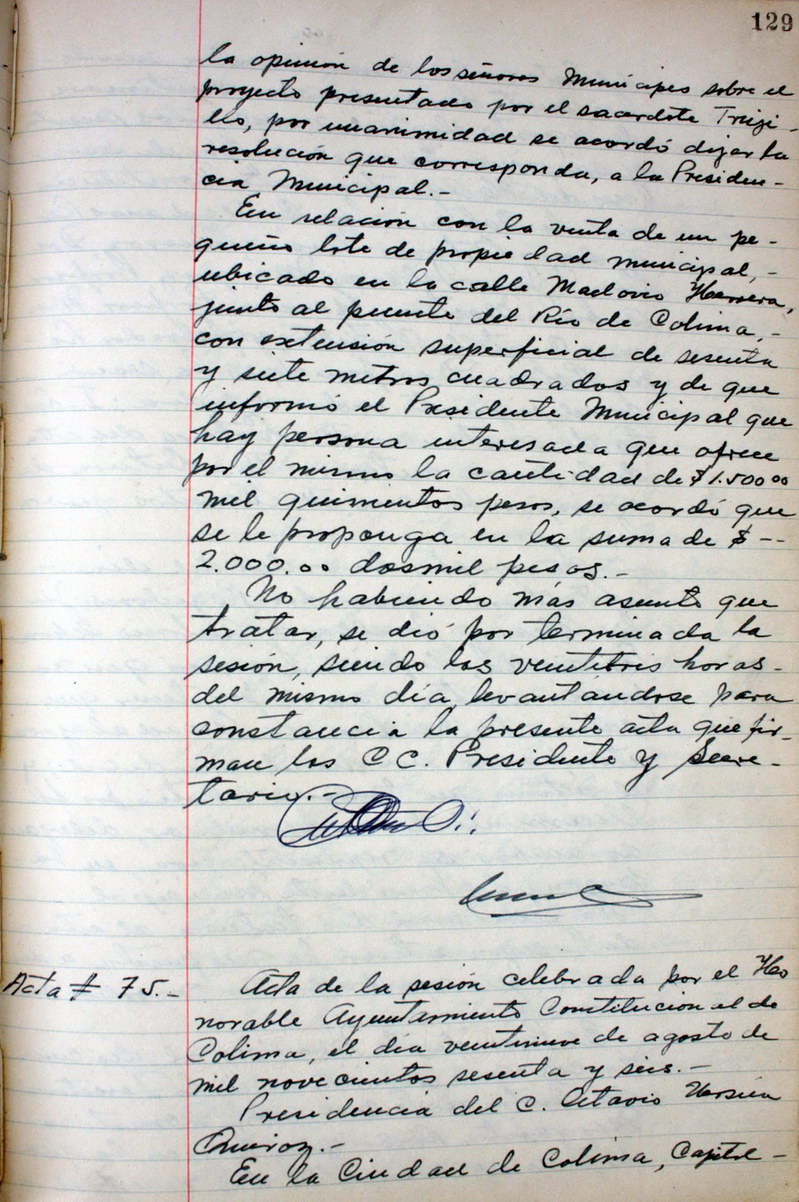 129
la opinión de los señores Munícipes sobre el
proyecto presentado por el sacerdote Truji-
llo, por unanimidad se acordó dejar la
resolución que corresponda, a la Presiden-
cia Municipal.-
En relación con la venta de un pe-
queño lote de propiedad municipal,-
ubicado en la calle Maclovio Herrera,
junto al puente del Río de Colima,-
con extensión superficial de sesenta
y siete metros cuadrados y de que
informó el Presidente Municipal que
hay persona interesada que ofrece
por el mismo la cantidad de $1.500.00
mil quinientos pesos, se acordó que
se le proponga en la suma de $--
2.000.00 dosmil pesos.-
No habiendo más asunto que
tratar, se dió por terminada la
sesión, siendo las veintitris horas-
del mismo día levantándose para
constancia la presente acta que fir-
man los C C. Presidente y Secre-
tario.-
Acta # 75.-
Acta de la sesión celebrada por el Ho
norable Ayuntamiento Constitucional de
Colima, el día veintinueve de agosto de
mil novecientos sesenta y seis.-
Presidencia del C. Octavio
Quiroz.-
En la Ciudad de Colima, Capital-